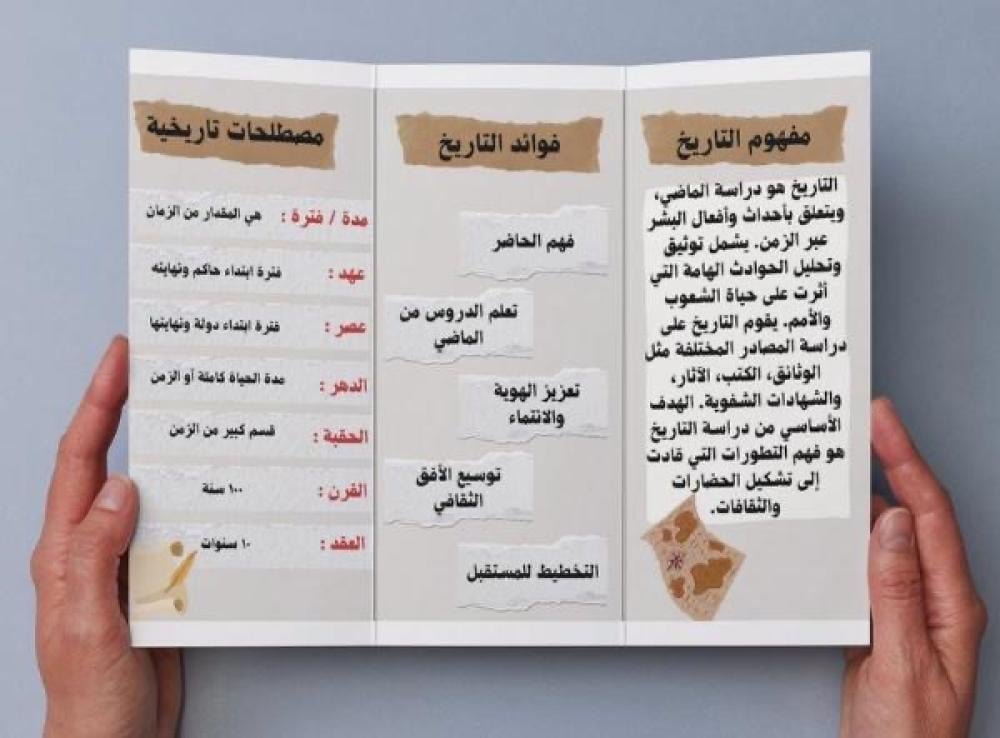 مفهوم التاريخ
التاريخ هو دراسة الماضي،
ويتعلق بأحداث وأفعال البشر
عبر الزمن. يشمل توثيق
وتحليل الحوادث الهامة التي
أثرت على حياة الشعوب
والأمم. يقوم التاريخ على
دراسة المصادر المختلفة مثل
الوثائق، الكتب، الآثار،
والشهادات الشفوية. الهدف
الأساسي من دراسة التاريخ
هو فهم التطورات التي قادت
إلى تشكيل الحضارات
والثقافات.
فوائد التاريخ
فهم الحاضر
تعلم الدروس من
الماضي
تعزيز الهوية
والانتماء
توسيع الأفق
الثقافي
التخطيط للمستقبل
مصطلحات تاريخية
مدة / فترة : هي المقدار من الزمان
عهد : فترة ابتداء حاكم ونهايته
عصر : فترة ابتداء دولة ونهايتها
الدهر : مدة الحياة كاملة أو الزمن
الحقبة : قسم كبير من الزمن
القرن : ١٠٠ سنة
العقد : ١٠ سنوات